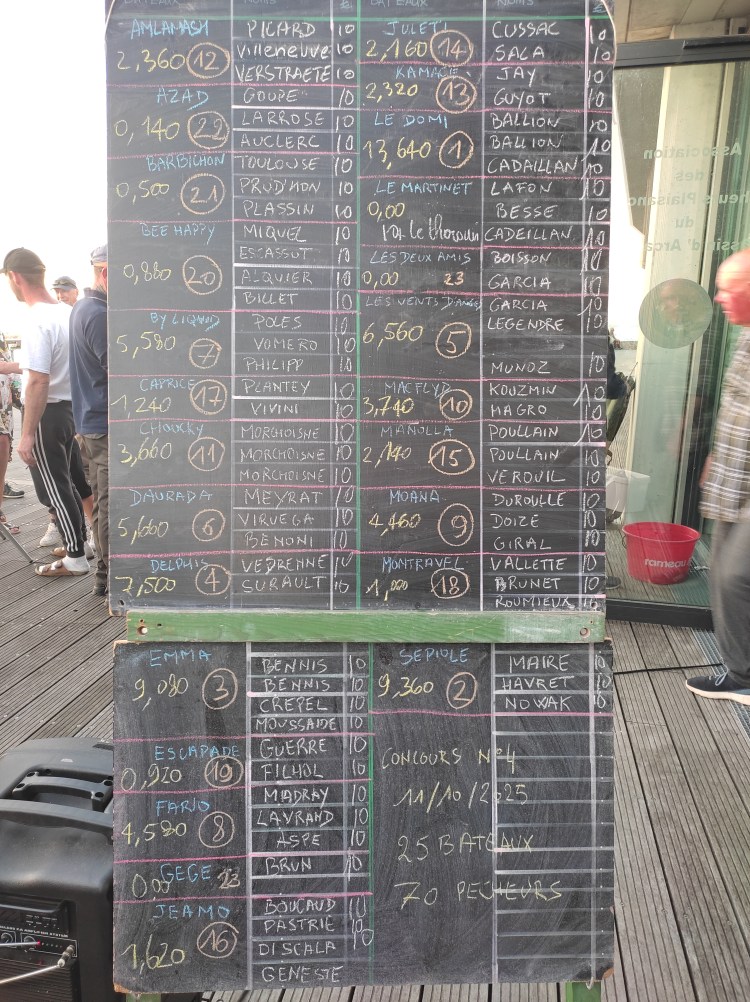 BATEAUX NOMS £ BATEAUX NOMS £
AMLAMASH
2,360 12
PICARD 10
Villeneuve 10
VERSTRAETE 10
AZAD
0,140 22
GOUPE 10
LARROSE 10
AUCLERC 10
BARBICHON
0,500 21
TOULOUSE 10
PRUD'MON 10
PLASSIN 10
BEE HAPPY
0,880 20
MIQUEL 10
ESCASSUT 10
ALQUIER 10
BILLET 10
BY LIQUID
5,580 7
POLES 10
VOMERO 10
PHILIPP 10
CAPRICE
1,240 17
PLANTEY 10
VIVINI 10
CHOUCKY
3,660 11
MORCHOISNE 10
MORCHOISNE 10
MORCHOISNE 10
DAURADA
5,660 6
MEYRAT 10
VIRUEGA 10
BENONI 10
DELPHIS
7,500 4
VEDRENNE 10
SURAULT 10
JULETI
2,160 14
CUSSAC 10
SALA 10
KAMACE
2,320 13
JAY 10
GUYOT 10
LE DOMI
13,640 1
BALLION 10
BALLION 10
CADAILLAN 10
LE MARTINET
0,00
LAFON 10
BESSE 10
CADEILLAN 10
LES DEUX AMIS
0,00 23
BOISSON 10
GARCIA 10
LES VENTS D'ANGES
6,560 5
GARCIA 10
LEGENDRE 10
MUNOZ 10
MACFLYD
3,740 10
KOUZMIN 10
MAGRO 10
MANOLLA
2,140 15
POULLAIN 10
POULLAIN 10
VEROUIL 10
MOANA
4,460 9
DUROULLE 10
DOIZE 10
GIRAL 10
MONTRAVEL
18
VALLETTE 10
BRUNET 10
ROUMIEUX 10
EMMA
9,080 3
BENNIS 10
BENNIS 10
CREPEL 10
MOUSSAIDE 10
ESCAPADE
0,920 19
GUERRE 10
FILHOL 10
FARIO
4,580 8
MIADRAY 10
LAVRAND 10
ASPE 10
GEGE
0,00 23
BRUN 10
JEAMO
1,620 16
BOUCAUD 10
PASTRIE 10
DI SCALA 10
GENESTE
SEPIOLE
9,360 2
MAIRE 10
HAVRET 10
NOWAK 10
CONCOURS N°4
11/10/2025
25 BATEAUX
70 PECHEURS
Association
des
du
rameau